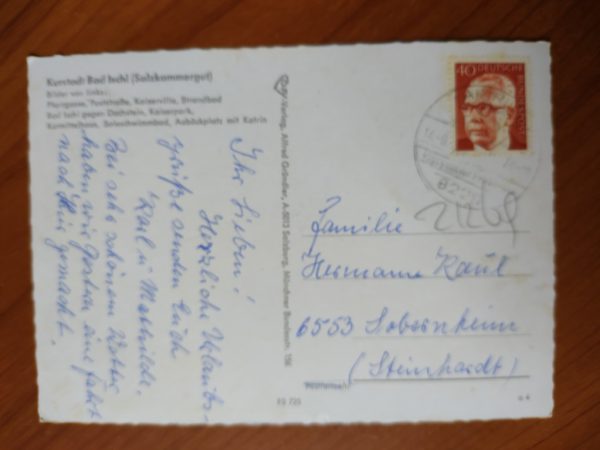 Kurstadt Bad Ischl (Salzkammergut)
Bilder von links:
Pfarrgasse, Poststraße, Kaiservilla, Strandbad
Bad Ischl gegen Dachstein, Kaiserpark,
Kurmittelhaus, Soleschwimmbad, Aubäckplatz mit Katrin
Ihr Lieben!
Herzliche Urlaubs-
grüße senden Euch
Karl u. Mathilde.
Bei sehr schönem Wetter
haben wir gestern eine Fahrt
nach hier gemacht.
Verlag, Alfred Gründler, A-5013 Salzburg, Münchner Bundesstr. 156
40 DEUTSCHE BUNDESPOST
822
Familie
Hermann Raul
6553 Sobernheim
(Steinhardt)
Postleitzahl